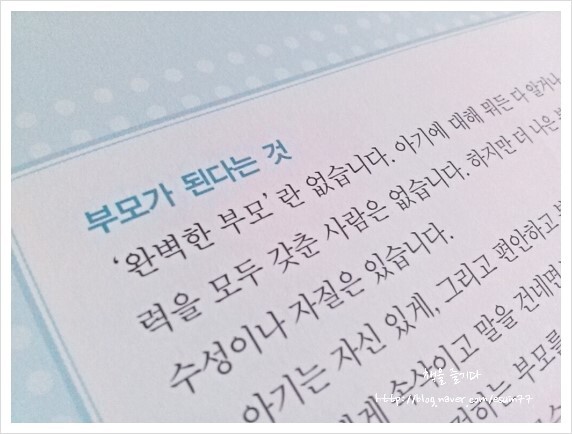 부모가 된다는 것
‘완벽한 부모’란 없습니다. 아기에 대해 뭐든 다 알거나
력을 모두 갖춘 사람은 없습니다. 하지만 더 나은
수성이나 자질은 있습니다.
아기는 자신 있게, 그리고 편안하고
손상이고 말을 건네면
하는 부모를
책을 즐기다
http://blog.naver.com/esun77